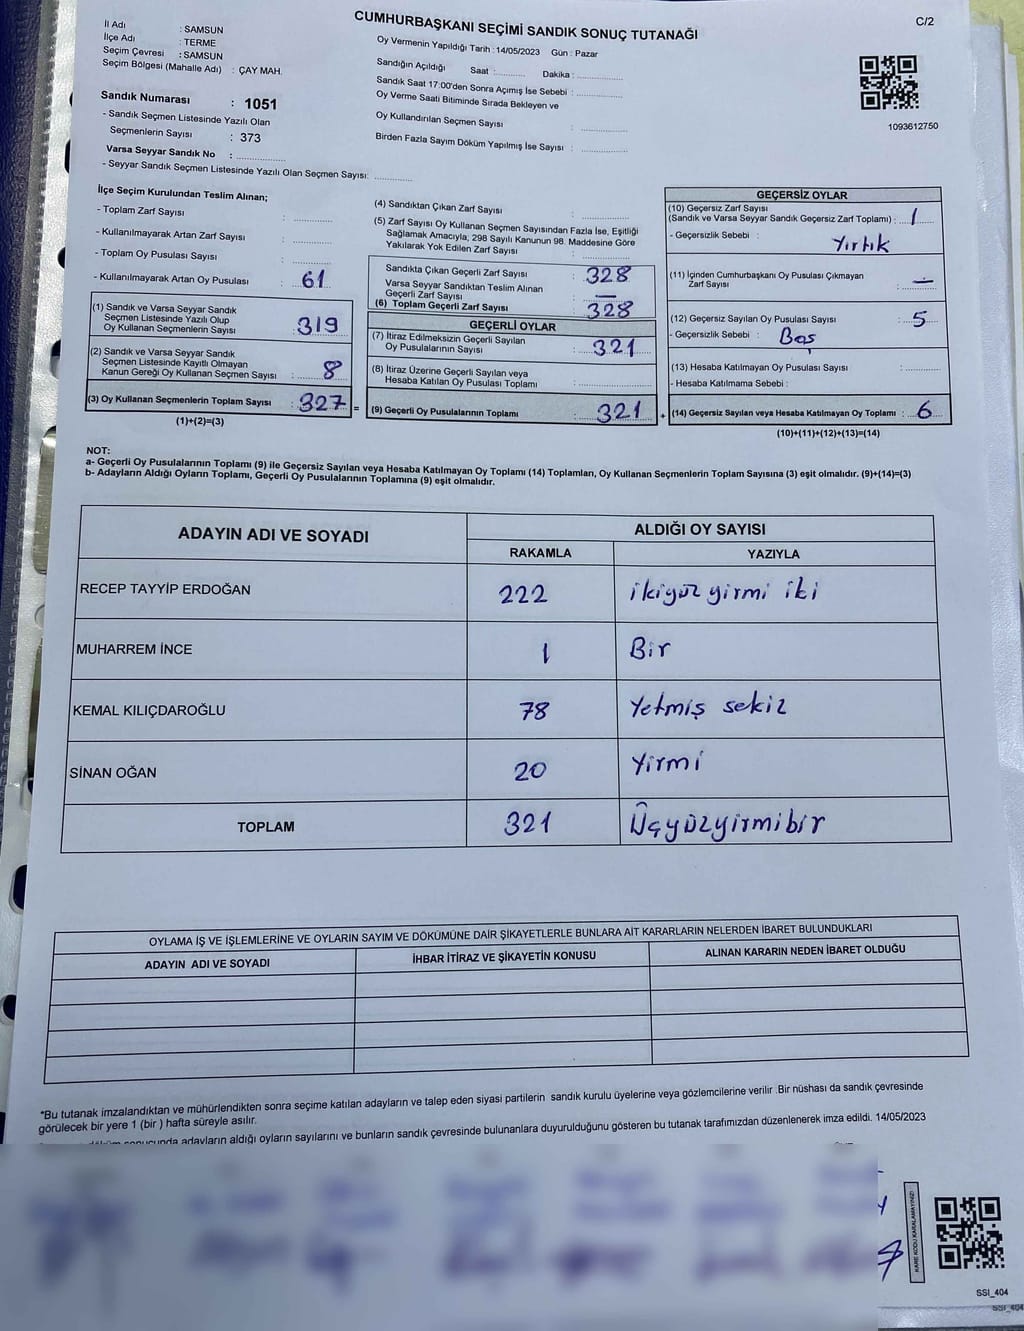 CUMHURBAŞKANI SEÇİMİ SANDIK SONUÇ TUTANAĞI
C/2
İl Adı : SAMSUN
İlçe Adı : TERME
Seçim Çevresi : SAMSUN
Seçim Bölgesi (Mahalle Adı) : ÇAY MAH.
Sandık Numarası : 1051
- Sandık Seçmen Listesinde Yazılı Olan
Seçmenlerin Sayısı : 373
Varsa Seyyar Sandık No :
- Seyyar Sandık Seçmen Listesinde Yazılı Olan Seçmen Sayısı:
Oy Vermenin Yapıldığı Tarih : 14/05/2023 Gün : Pazar
Sandığın Açıldığı Saat : Dakika :
Sandık Saat 17:00'den Sonra Açımış İse Sebebi :
Oy Verme Saati Bitiminde Sırada Bekleyen ve
Oy Kullandırılan Seçmen Sayısı :
Birden Fazla Sayım Döküm Yapılmış İse Sayısı :
1093612750
İlçe Seçim Kurulundan Teslim Alınan;
- Toplam Zarf Sayısı :
- Kullanılmayarak Artan Zarf Sayısı :
- Toplam Oy Pusulası Sayısı :
- Kullanılmayarak Artan Oy Pusulası : 61
(1) Sandık ve Varsa Seyyar Sandık
Seçmen Listesinde Yazılı Olup
Oy Kullanan Seçmenlerin Sayısı : 319
(2) Sandık ve Varsa Seyyar Sandık
Seçmen Listesinde Kayıtlı Olmayan
Kanun Gereği Oy Kullanan Seçmen Sayısı : 8
(3) Oy Kullanan Seçmenlerin Toplam Sayısı : 327 =
(1)+(2)=(3)
(4) Sandıktan Çıkan Zarf Sayısı :
(5) Zarf Sayısı Oy Kullanan Seçmen Sayısından Fazla İse, Eşitliği
Sağlamak Amacıyla, 298 Sayılı Kanunun 98. Maddesine Göre
Yakılarak Yok Edilen Zarf Sayısı :
Sandıkta Çıkan Geçerli Zarf Sayısı : 328
Varsa Seyyar Sandıktan Teslim Alınan
Geçerli Zarf Sayısı : —
(6) Toplam Geçerli Zarf Sayısı : 328
GEÇERLİ OYLAR
(7) İtiraz Edilmeksizin Geçerli Sayılan
Oy Pusulalarının Sayısı : 321
(8) İtiraz Üzerine Geçerli Sayılan veya
Hesaba Katılan Oy Pusulası Toplamı :
(9) Geçerli Oy Pusulalarının Toplamı : 321 +
GEÇERSİZ OYLAR
(10) Geçersiz Zarf Sayısı
(Sandık ve Varsa Seyyar Sandık Geçersiz Zarf Toplamı) : 1
- Geçersizlik Sebebi : Yırtık
(11) İçinden Cumhurbaşkanı Oy Pusulası Çıkmayan
Zarf Sayısı : —
(12) Geçersiz Sayılan Oy Pusulası Sayısı : 5
- Geçersizlik Sebebi : Boş
(13) Hesaba Katılmayan Oy Pusulası Sayısı :
- Hesaba Katılmama Sebebi :
(14) Geçersiz Sayılan veya Hesaba Katılmayan Oy Toplamı : 6
(10)+(11)+(12)+(13)=(14)
NOT:
a- Geçerli Oy Pusulalarının Toplamı (9) ile Geçersiz Sayılan veya Hesaba Katılmayan Oy Toplamı (14) Toplamları, Oy Kullanan Seçmenlerin Toplam Sayısına (3) eşit olmalıdır. (9)+(14)=(3)
b- Adayların Aldığı Oyların Toplamı, Geçerli Oy Pusulalarının Toplamına (9) eşit olmalıdır.
ADAYIN ADI VE SOYADI ALDIĞI OY SAYISI
RAKAMLA YAZIYLA
RECEP TAYYİP ERDOĞAN 222 ikiyüz yirmi iki
MUHARREM İNCE 1 Bir
KEMAL KILIÇDAROĞLU 78 Yetmiş sekiz
SİNAN OĞAN 20 Yirmi
TOPLAM 321 Üçyüzyirmibir
OYLAMA İŞ VE İŞLEMLERİNE VE OYLARIN SAYIM VE DÖKÜMÜNE DAİR ŞİKAYETLERLE BUNLARA AİT KARARLARIN NELERDEN İBARET BULUNDUKLARI
ADAYIN ADI VE SOYADI İHBAR İTİRAZ VE ŞİKAYETİN KONUSU ALINAN KARARIN NEDEN İBARET OLDUĞU
*Bu tutanak imzalandıktan ve mühürlendikten sonra seçime katılan adayların ve talep eden siyasi partilerin sandık kurulu üyelerine veya gözlemcilerine verilir .Bir nüshası da sandık çevresinde
görülecek bir yere 1 (bir ) hafta süreyle asılır.
sonucunda adayların aldığı oyların sayılarını ve bunların sandık çevresinde bulunanlara duyurulduğunu gösteren bu tutanak tarafımızdan düzenlenerek imza edildi. 14/05/2023
KARE KODU KARALAMAYINIZ!
SSI_404
SSI_404